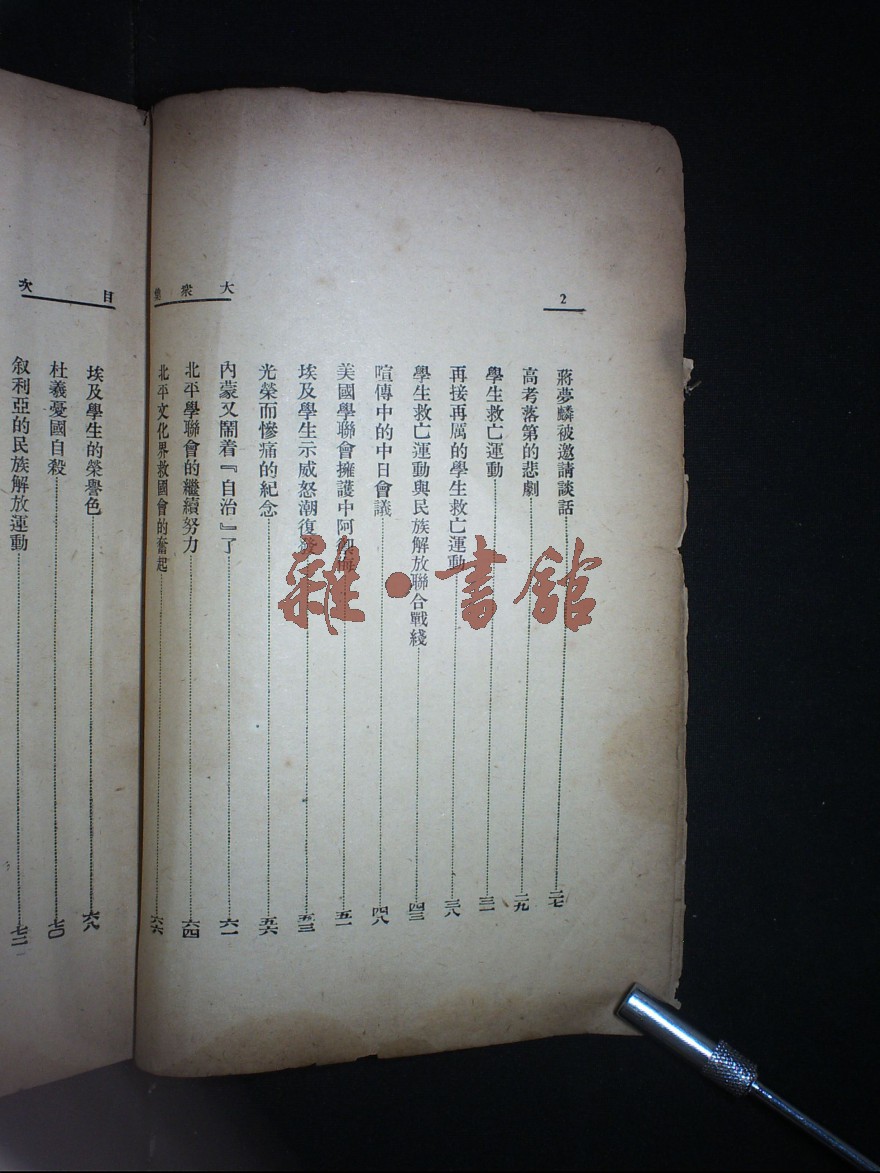 2
蔣夢麟被邀請談話 二七
高考落第的悲劇 二九
學生救亡運動 三一
再接再厲的學生救亡運動 三八
學生救亡運動與民族解放聯合戰綫 四三
喧傳中的中日會議 四八
美國學聯會擁護中阿 五一
埃及學生示威怒潮復 五三
光榮而慘痛的紀念 五六
內蒙又鬧着『自治』了 六一
北平學聯會的繼續努力 六四
北平文化界救國會的奮起 六六
大衆
目次
埃及學生的榮譽色 六八
杜羲憂國自殺 七〇
叙利亞的民族解放運動 七二
雜·書館